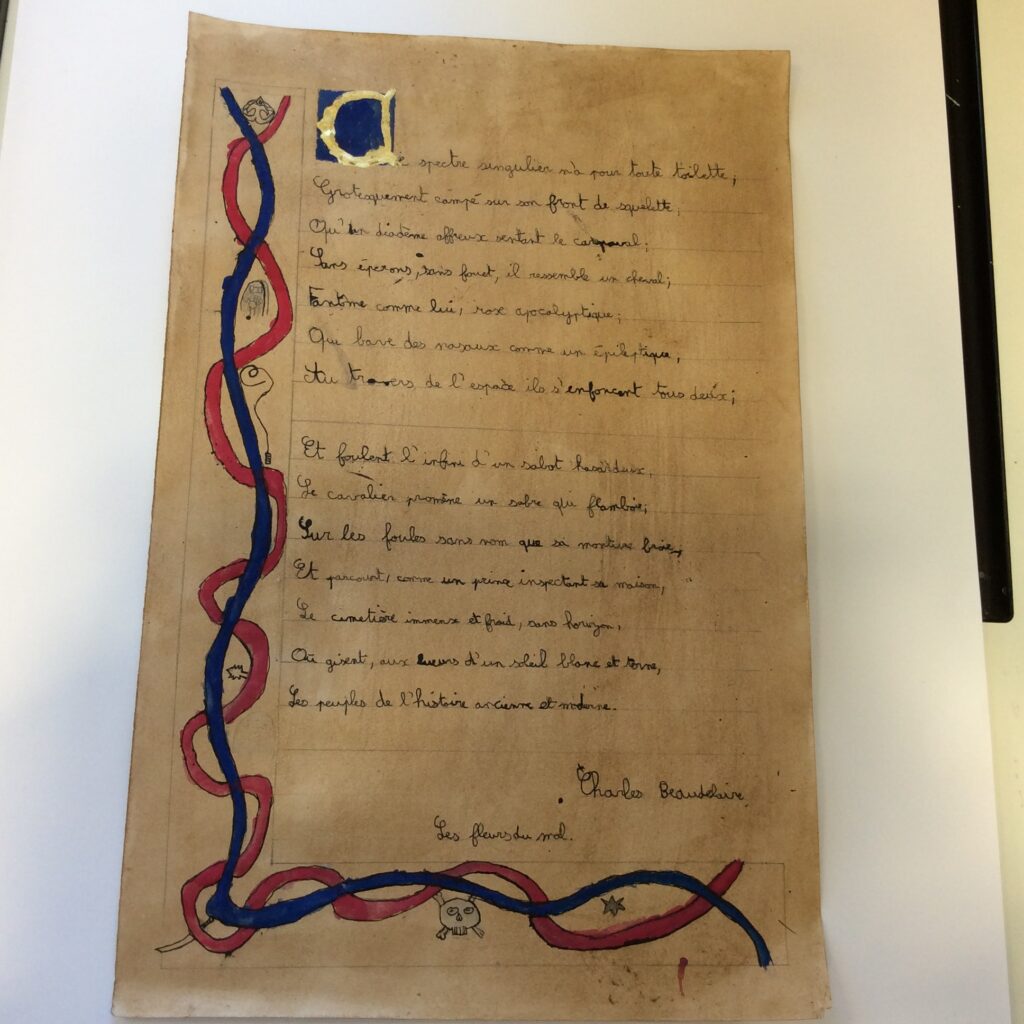 Ce spectre singulier n'a pour toute toilette;
Grotesquement campé sur son front de squelette,
Qu'un diadème affreux sentant le carnaval;
Sans éperons, sans fouet, il ressemble un cheval;
Fantôme comme lui, rosse apocalyptique;
Qui bave des nasaux comme un épileptique,
Au travers de l'espace ils s'enfoncent tous deux;
Et foulent l'infini d'un sabot hasardeux,
Le cavalier promène un sabre qui flamboie;
Sur les foules sans nom que sa monture broie,
Et parcourt, comme un prince inspectant sa maison,
Le cimetière immense et froid, sans horizon,
Où gisent, aux lueurs d'un soleil blanc et terne,
Les peuples de l'histoire ancienne et moderne.
Charles Beaudelaire
Les fleurs du mal.